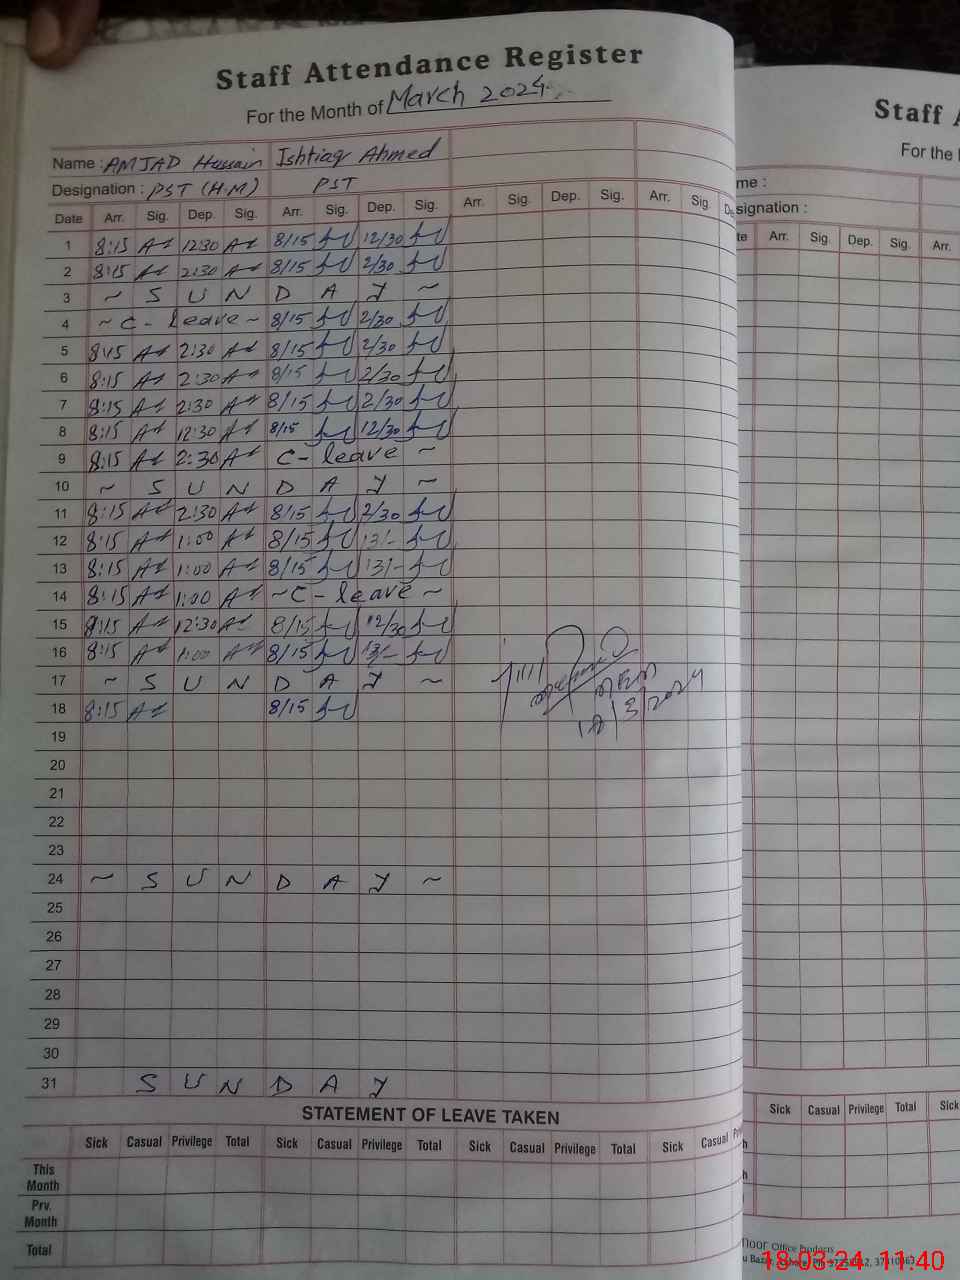 Staff Attendance Register
For the Month of March 2024
Name : AMJAD Hussain Ishtiaq Ahmed
Designation : PST (H.M) PST
Date Arr. Sig. Dep. Sig. Arr. Sig. Dep. Sig. Arr. Sig. Dep. Sig. Arr. Sig.
1 8:15 12:30 8/15 12/30
2 8:15 2:30 8/15 2/30
3 ~ S U N D A Y ~
4 ~ C - leave ~ 8/15 2/30
5 8:15 2:30 8/15 2/30
6 8:15 2:30 8/15 2/30
7 8:15 2:30 8/15 2/30
8 8:15 12:30 8/15 12/30
9 8:15 2:30 C - leave ~
10 ~ S U N D A Y ~
11 8:15 2:30 8/15 2/30
12 8:15 1:00 8/15
13 8:15 1:00 8/15
14 8:15 1:00 ~ C - leave ~
15 8:15 12:30 8/15 12/30
16 8:15 1:00 8/15
17 ~ S U N D A Y ~
18 8:15 8/15
19
20
21
22
23
24 ~ S U N D A Y ~
25
26
27
28
29
30
31 S U N D A Y
STATEMENT OF LEAVE TAKEN
Sick Casual Privilege Total Sick Casual Privilege Total Sick Casual Privilege Total Sick Casual
This Month
Prv. Month
Total
Staff
For the
me :
signation :
Arr. Sig. Dep. Sig. Arr.
Sick Casual Privilege Total Sick
Office Products
18-03-24 11:40